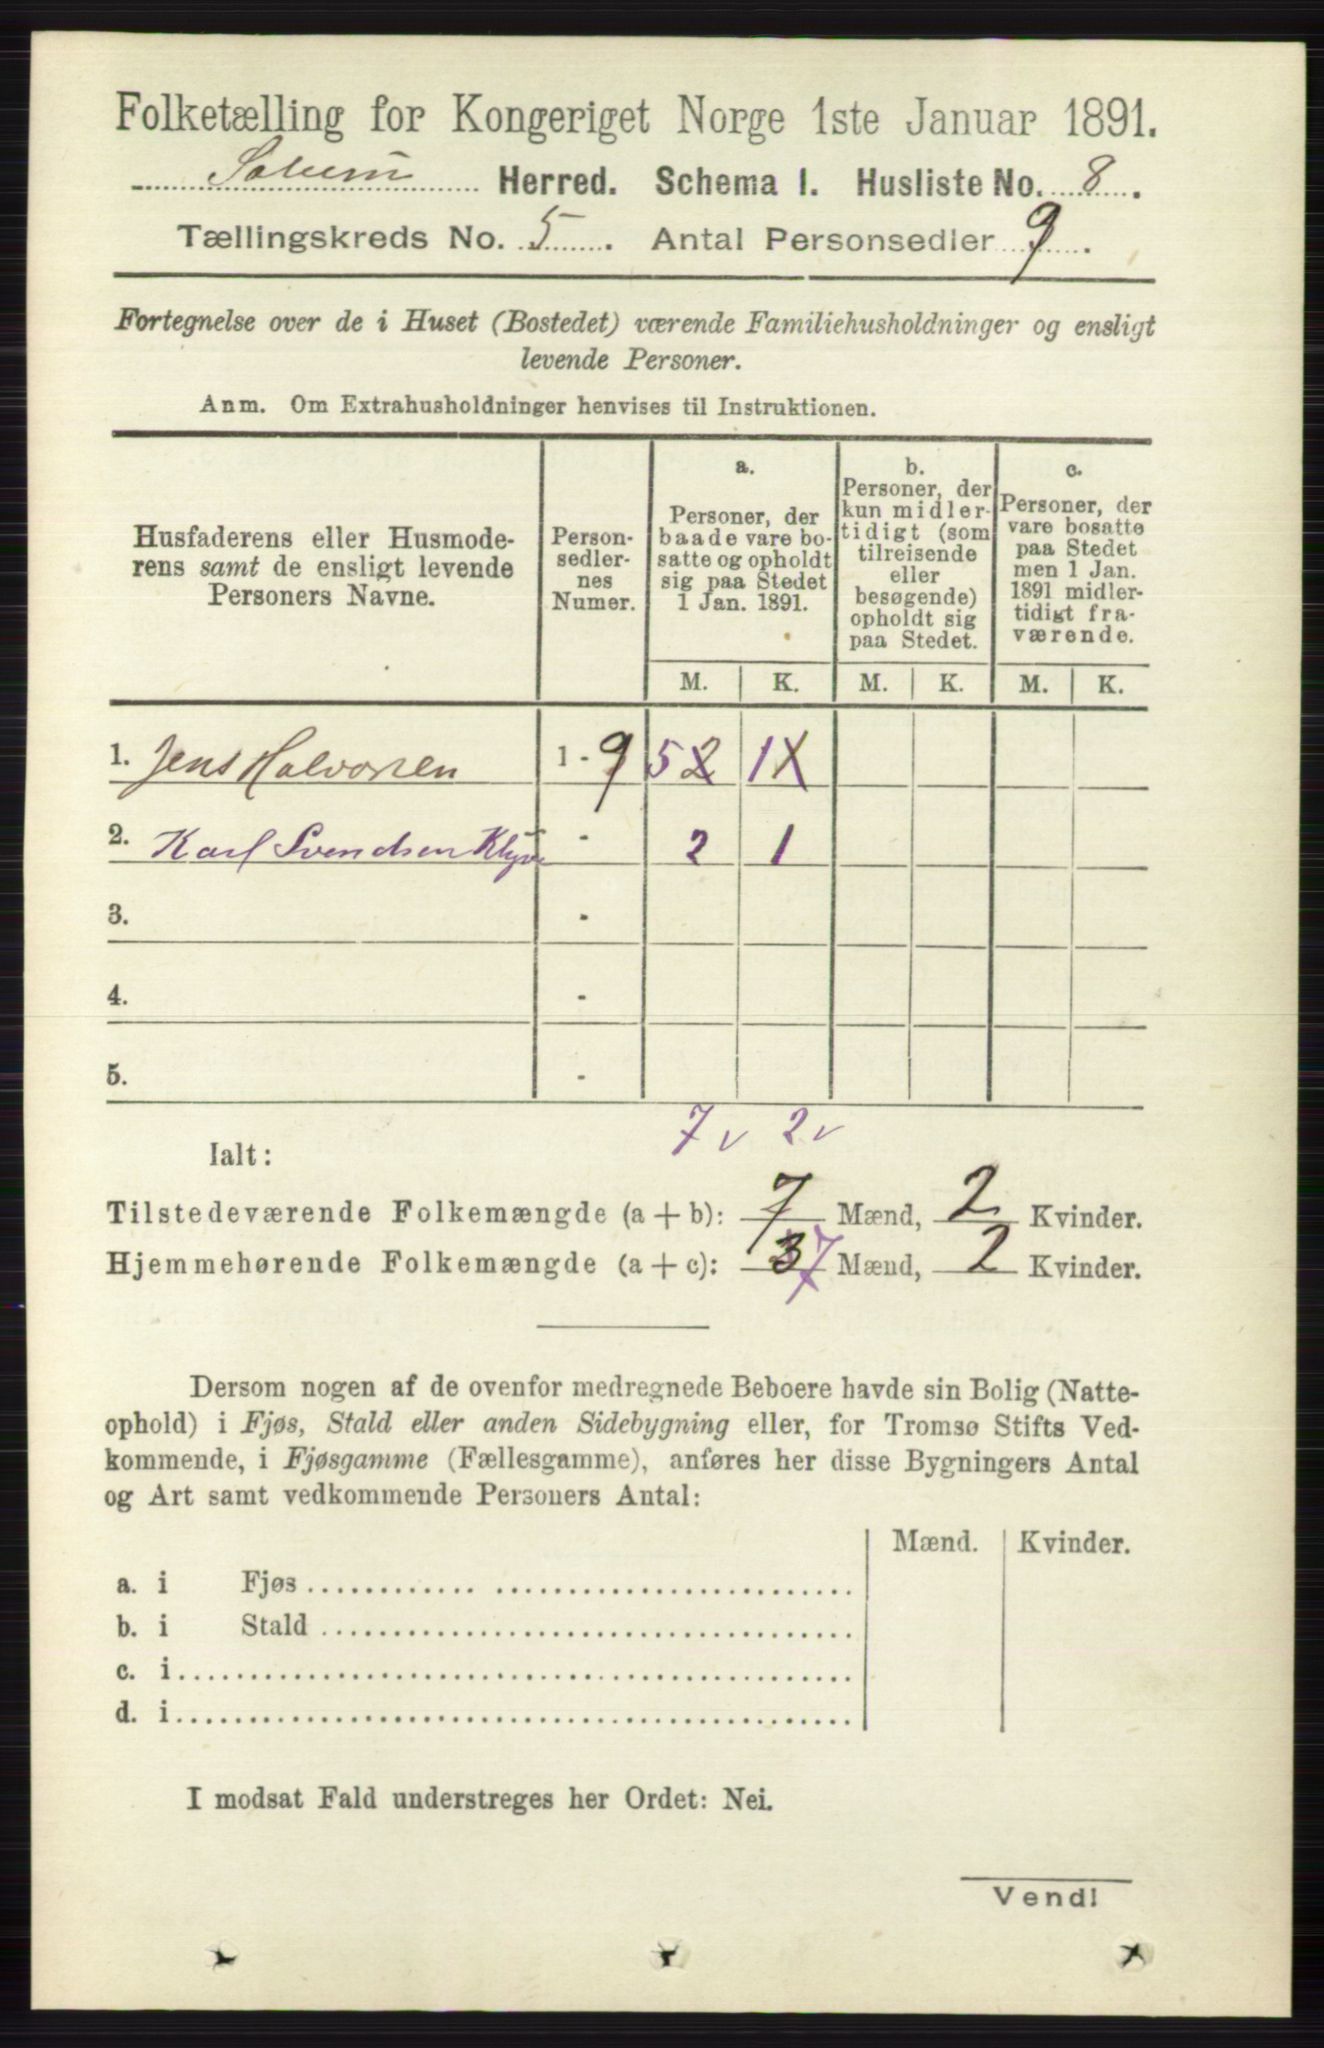 Folketælling for Kongeriget Norge 1ste Januar 1891.
Solum Herred. Schema I. Husliste No. 8.
Tællingskreds No. 5. Antal Personsedler 9.
Fortegnelse over de i Huset (Bostedet) værende Familiehusholdninger og ensligt
levende Personer.
Anm. Om Extrahusholdninger henvises til Instruktionen.
Husfaderens eller Husmode-
rens samt de ensligt levende
Personers Navne.
Person-
sedler-
nes
Numer.
a.
Personer, der
baade vare bo-
satte og opholdt
sig paa Stedet
1 Jan. 1891.
b.
Personer, der
kun midler-
tidigt (som
tilreisende
eller
besøgende)
opholdt sig
paa Stedet.
c.
Personer, der
vare bosatte
paa Stedet
men 1 Jan.
1891 midler-
tidigt fra-
værende.
M. K. M. K. M. K.
1. Jens Halvorsen 1 - 9 5 2 1
2. Karl Svendsen Klyve - 2 1
3. -
4. -
5. -
7 v 2 v
Ialt:
Tilstedeværende Folkemængde (a + b): 7 Mænd, 2 Kvinder.
Hjemmehørende Folkemængde (a + c): 3 7 Mænd, 2 Kvinder.
Dersom nogen af de ovenfor medregnede Beboere havde sin Bolig (Natte-
ophold) i Fjøs, Stald eller anden Sidebygning eller, for Tromsø Stifts Ved-
kommende, i Fjøsgamme (Fællesgamme), anføres her disse Bygningers Antal
og Art samt vedkommende Personers Antal:
Mænd. Kvinder.
a. i Fjøs
b. i Stald
c. i
d. i
I modsat Fald understreges her Ordet: Nei.
Vend!